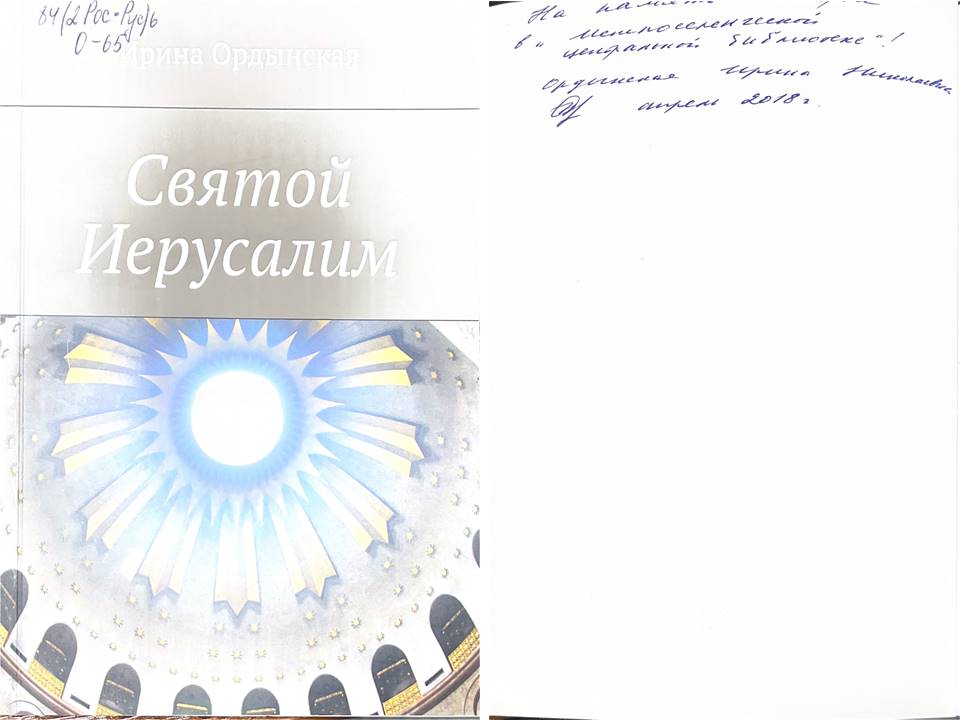 84(2Рос=Рус)6
О-65
Ирина Ордынская
Святой
Иерусалим
На память
в "межпоселенческой
центральной библиотеке"!
Ордынская Ирина Николаевна
апрель 2018 г.